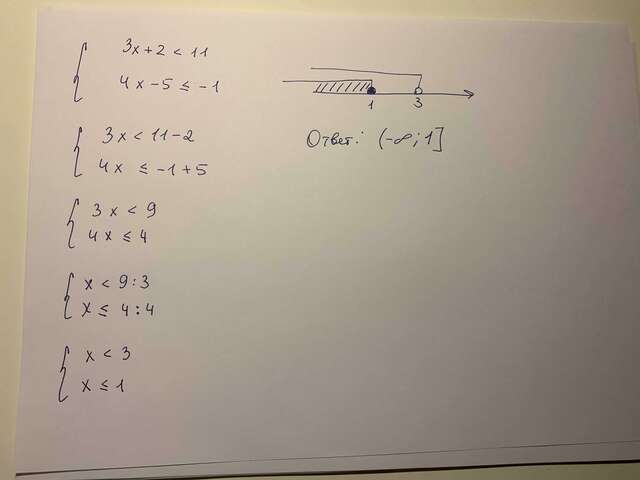 3x+2 < 11
4x-5 ≤ -1
3x < 11-2
4x ≤ -1+5
3x < 9
4x ≤ 4
x < 9:3
x ≤ 4:4
x < 3
x ≤ 1
1 3
Ответ: (-∞; 1]